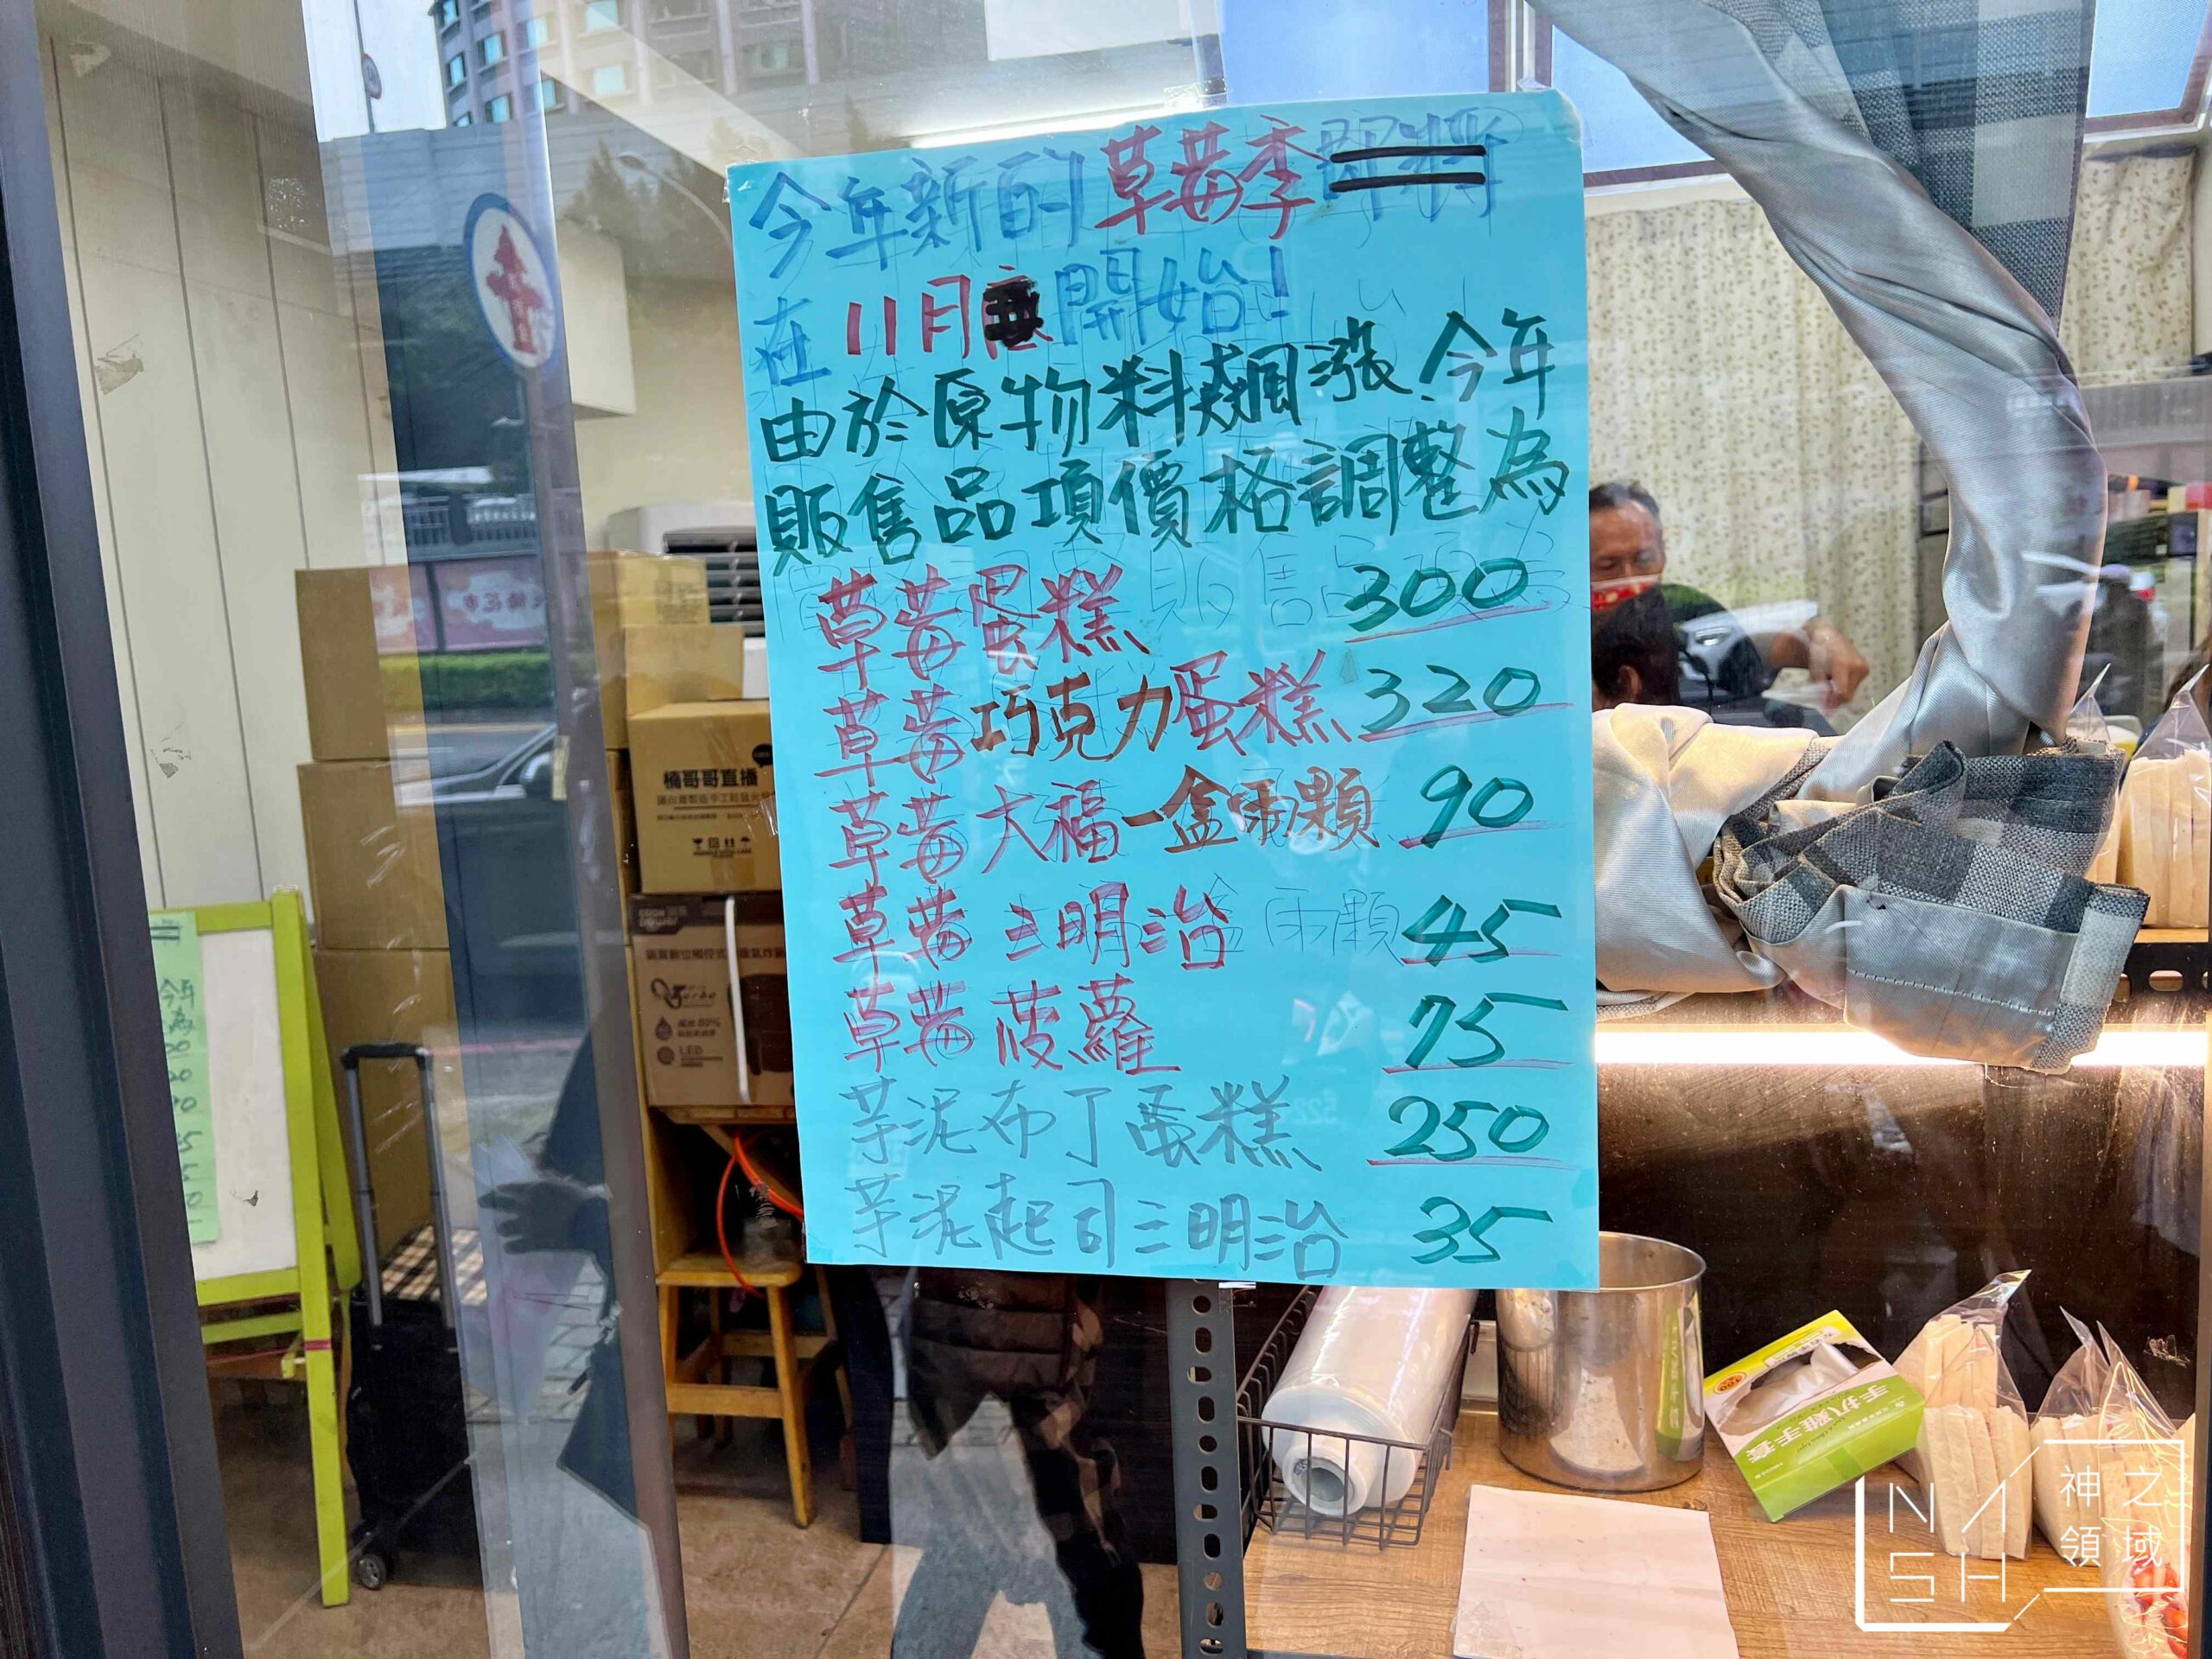 今年新的草莓季即將
在11月底開始!
由於原物料飆漲.今年
販售品項價格調整為
草莓蛋糕 300
草莓巧克力蛋糕 320
草莓大福一盒兩顆 90
草莓三明治 45
草莓菠蘿 75
芋泥布丁蛋糕 250
芋泥起司三明治 35
楠哥哥直播
LED
今年
為
手扒雞手套
NASH
神之領域